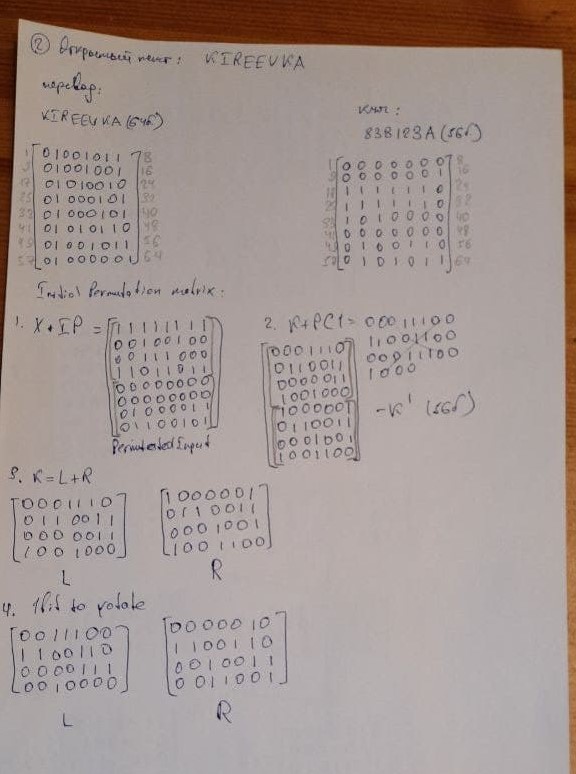 ② Открытый текст: KIREEVKA
перевод:
KIREEVKA (64б)
ключ:
83B123A (56б)
1 01001011 8
9 01001001 16
17 01010010 24
25 01000101 32
33 01000101 40
41 01010110 48
49 01001011 56
57 01000001 64
1 0000000 8
0000001 16
1111110 24
1111110 32
1010000 40
0000000 48
0100110 56
57 0101011 64
Initial Permutation matrix:
1. X + IP =
11111111
00100100
00111000
11011011
00000000
00000000
01000011
01100101
Permutated Input
2. K+PC1= 00011100
11001100
00011100
1000
0001110
0110011
0000011
1001000
1000001
0110011
0001001
1001100
- K' (56б)
3. K=L+R
0001110
0110011
0000011
1001000
L
1000001
0110011
0001001
1001100
R
4. 1bit to rotate
0011100
1100110
0000111
0010000
L
0000010
1100110
0010011
0011001
R